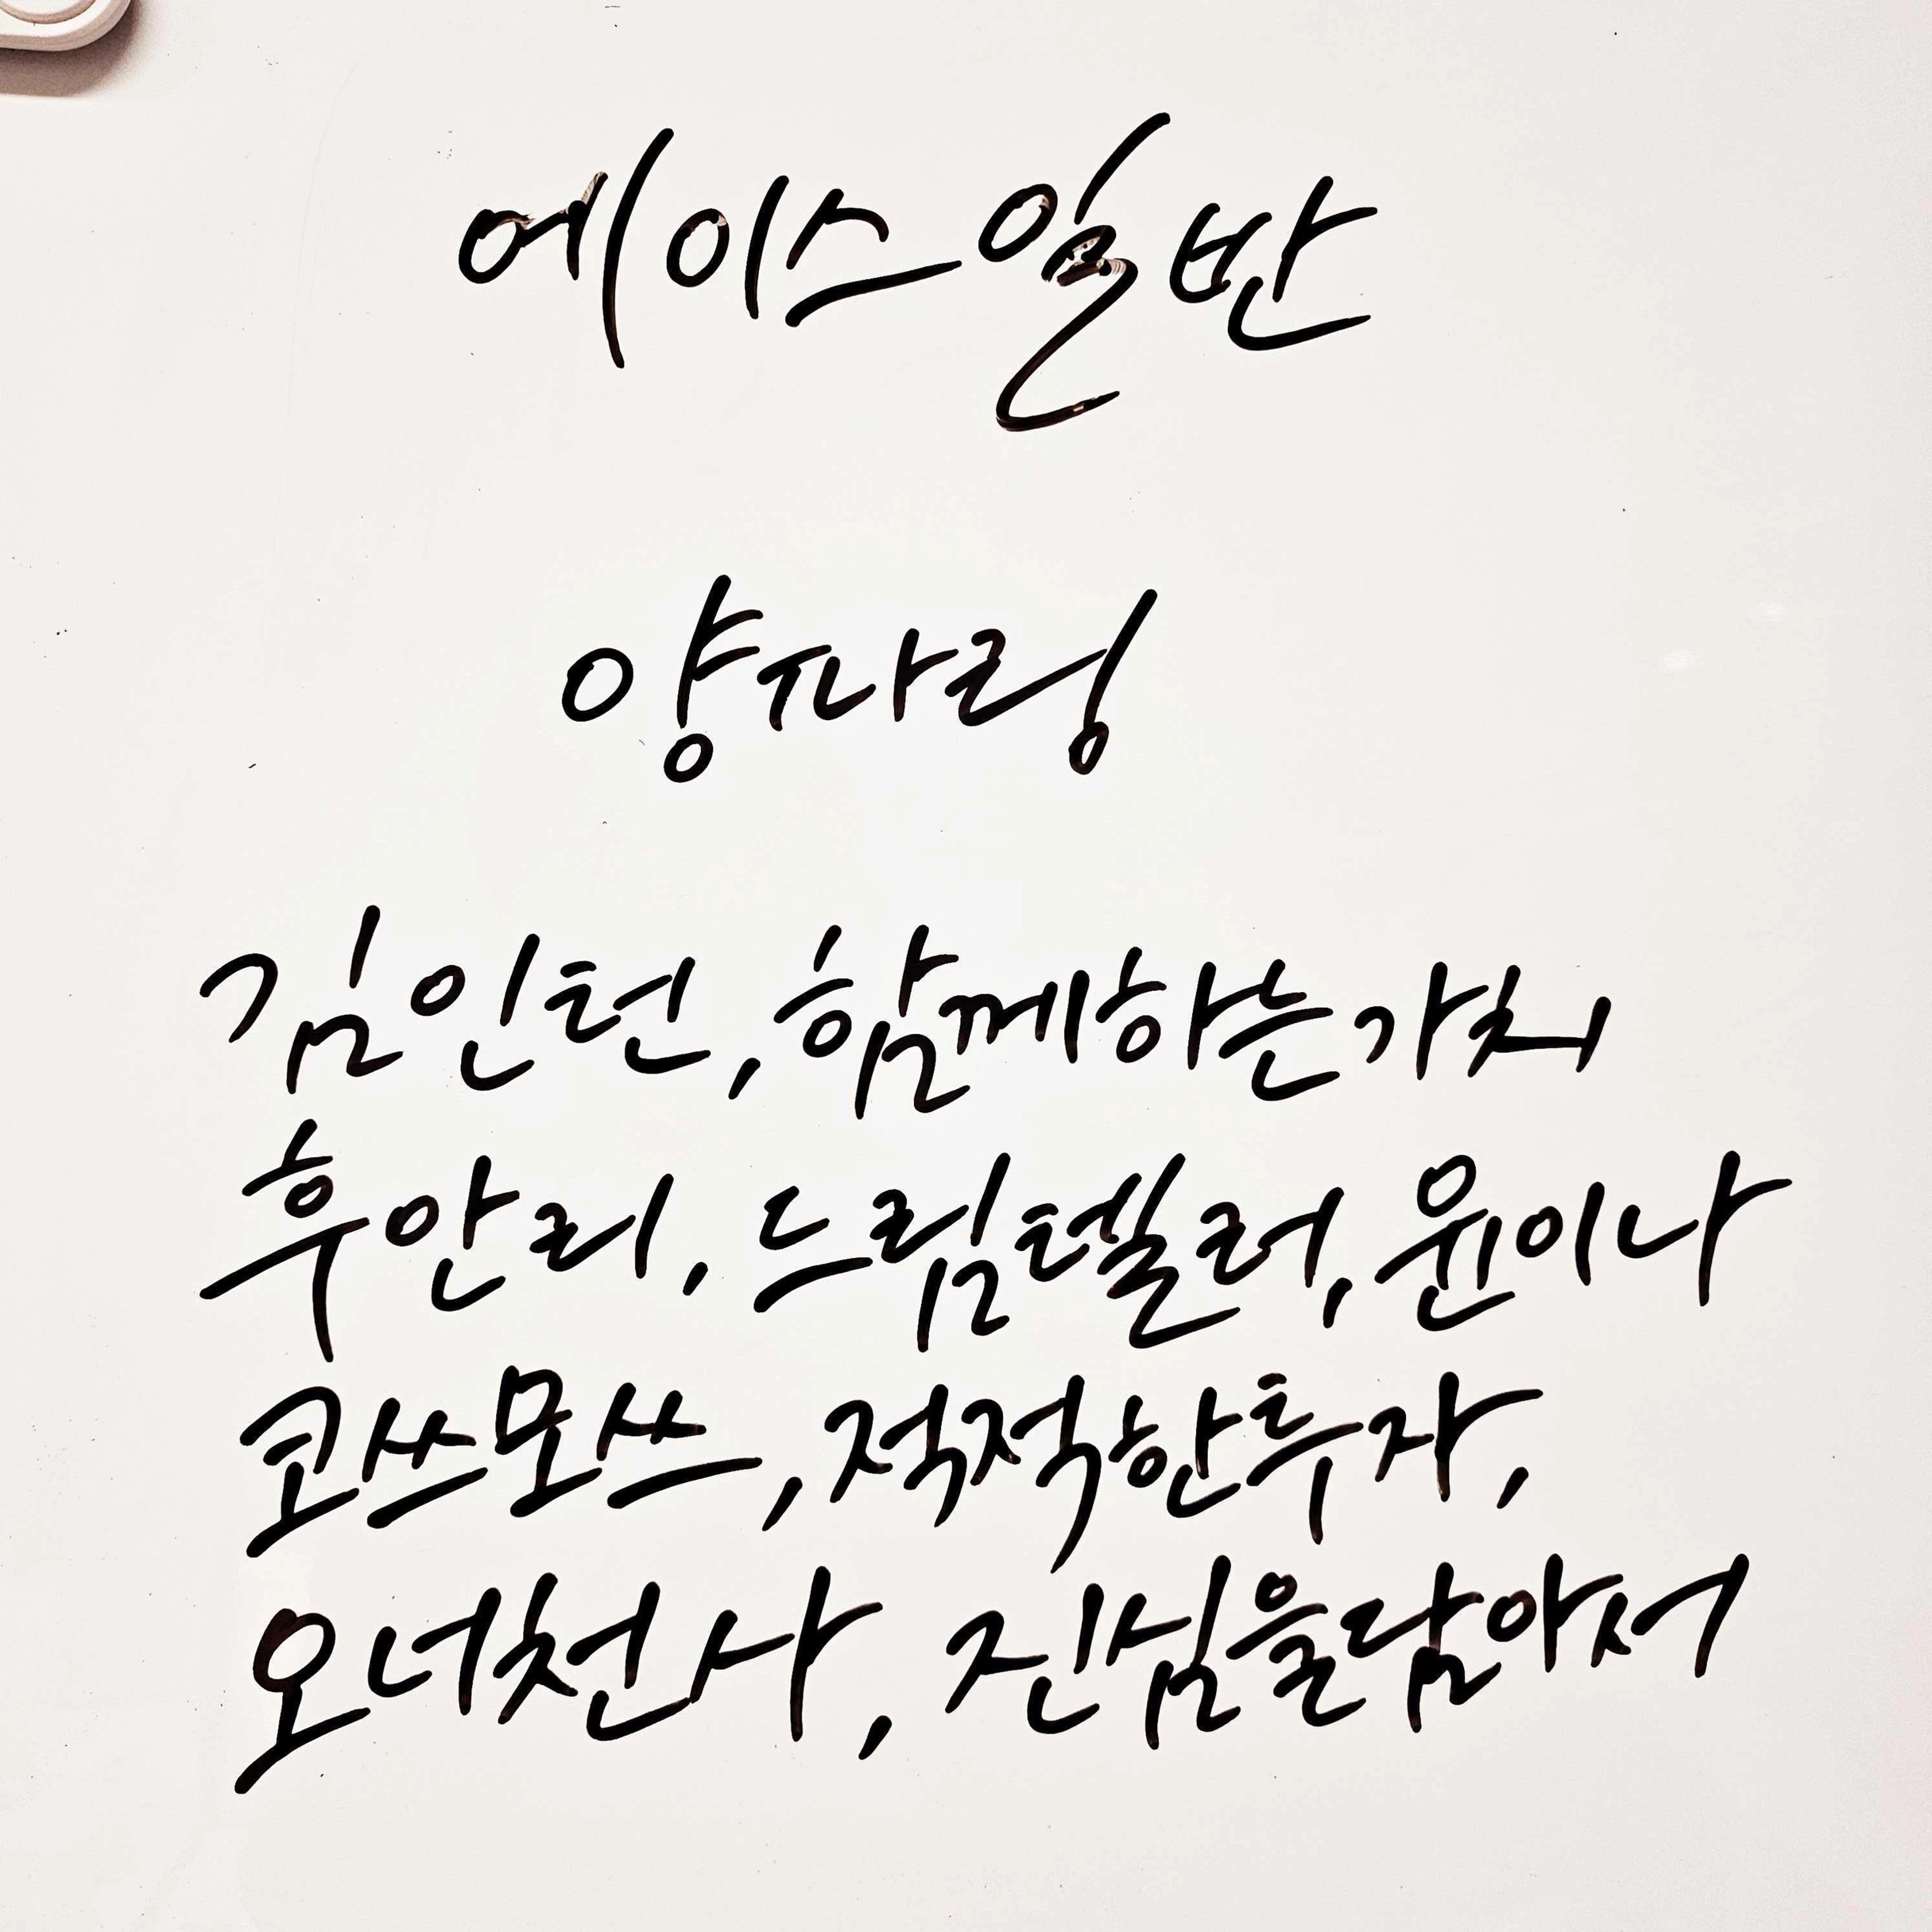 에이스 일반
양파링
김인턴,함께하는가치
후안리, 드림텔러, 윤이나
코쓰모쓰,적적한투자,
오너천사, 진심을담아서